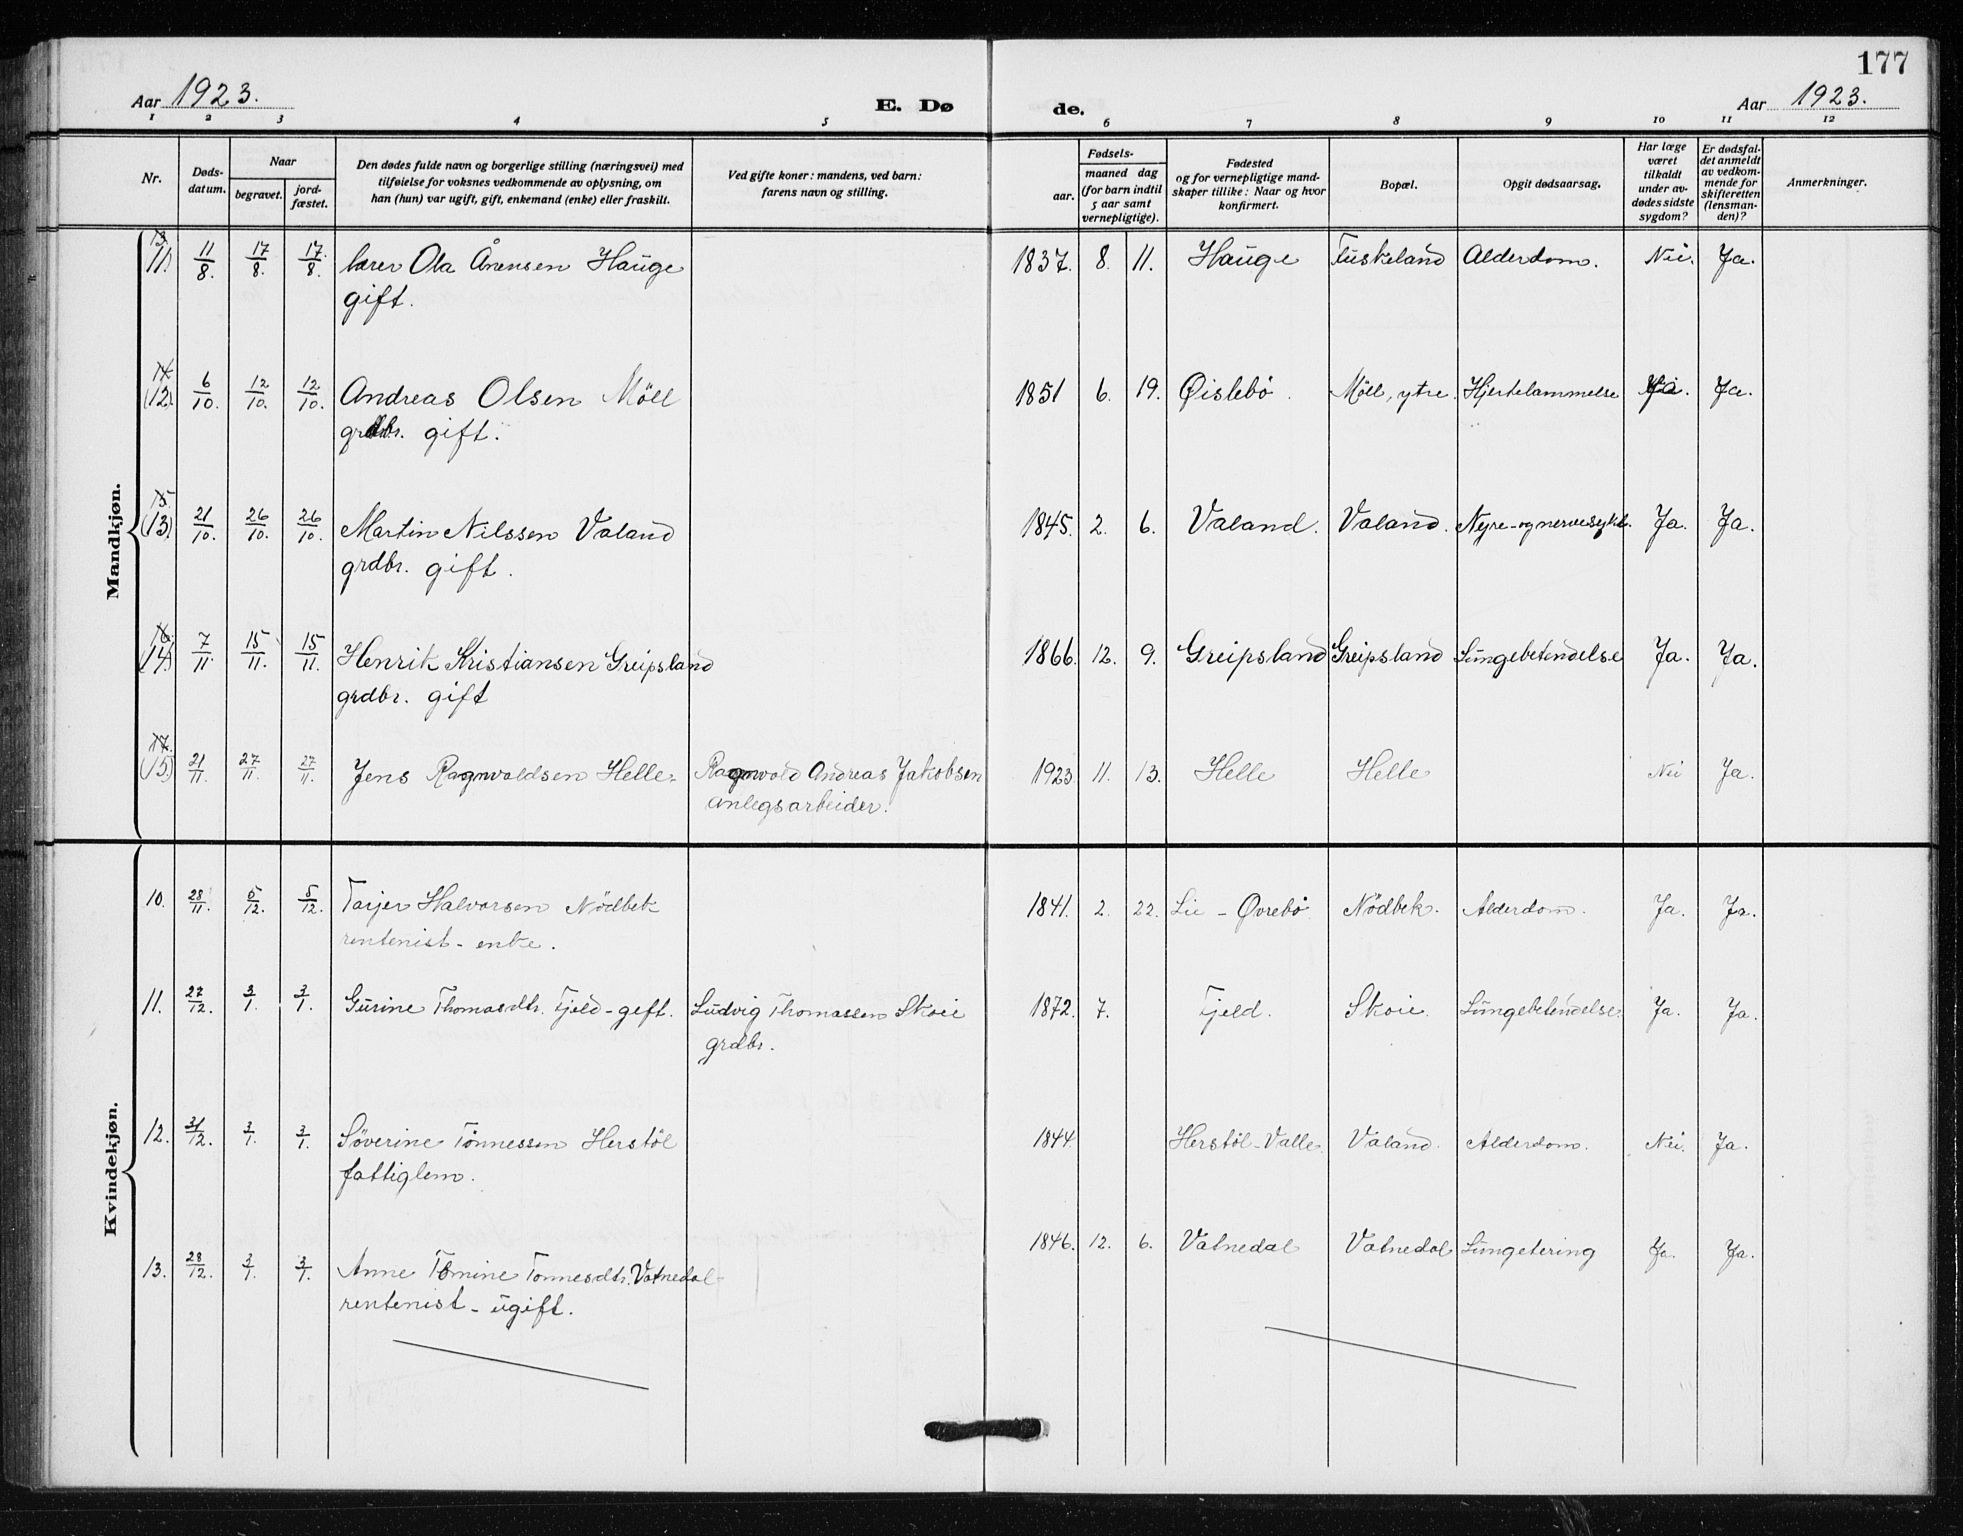 177
Aar 1923. E. Dø de. Aar 1923.
1 2 3 4 5 6 7 8 9 10 11 12
Nr. Døds-datum. Naar begravet. jord-fæstet. Den dødes fulde navn og borgerlige stilling (næringsvei) med tilføielse for voksnes vedkommende av oplysning, om han (hun) var ugift, gift, enkemand (enke) eller fraskilt. Ved gifte koner: mandens, ved barn: farens navn og stilling. Fødsels- aar. maaned dag (for barn indtil 5 aar samt vernepligtige). Fødested og for vernepligtige mand-skaper tillike: Naar og hvor konfirmert. Bopæl. Opgit dødsaarsag. Har læge været tilkaldt under av-dødes sidste sygdom? Er dødsfal-det anmeldt av vedkom-mende for skifteretten (lensman-den)? Anmerkninger.
Mandkjøn.
13
(11) 11/8. 17/8. 17/8. lærer Ola Ånensen Hauge 1837. 8. 11. Hauge Fuskeland Alderdom. Nei. Ja.
gift.
14
(12). 6/10. 12/10. 12/10. Andreas Olsen Möll 1851 6. 19. Øislebö. Möll, ytre. Hjertelammelse Ja. Ja.
grdbr. gift.
15
(13) 21/10. 26/10. 26/10. Martin Nilssen Valand 1845. 2. 6. Valand. Valand. Nyre- og nervesykd. Ja. Ja.
grdbr. gift.
16
(14) 7/11. 15/11. 15/11. Henrik Kristiansen Greipsland 1866. 12. 9. Greipsland Greipsland Lungebetendelse Ja. Ja.
grdbr. gift
17.
(15) 21/11. 27/11. 27/11. Jens Ragnvaldsen Helle- Ragnvald Andreas Jakobsen 1923 11. 13. Helle Helle Nei Ja.
anlegsarbeider.
Kvindekjøn.
10. 28/11. 5/12. 5/12. Tarjer Halvorsen Nödbek 1841. 2. 22. Lie - Øvrebö. Nödbek. Alderdom. Ja. Ja.
rentenist - enke.
11. 27/12. 3/1. 3/1. Gurine Thomasdtr. Fjeld - gift. Ludvig Thomassen Skoie 1872. 7. Fjeld. Skoie. Lungebetendelse. Ja. Ja.
grdbr.
12. 31/12. 3/1. 3/1. Söverine Tönnessen Herstöl 1844. Herstöl - Valle. Valand. Alderdom. Nei. Ja.
fattiglem.
13. 28/12. 3/1. 3/1. Anne Tomine Tonnesdtr. Vatnedal - 1846. 12. 6. Vatnedal Vatnedal Lungetering Ja. Ja.
rentenist - ugift.